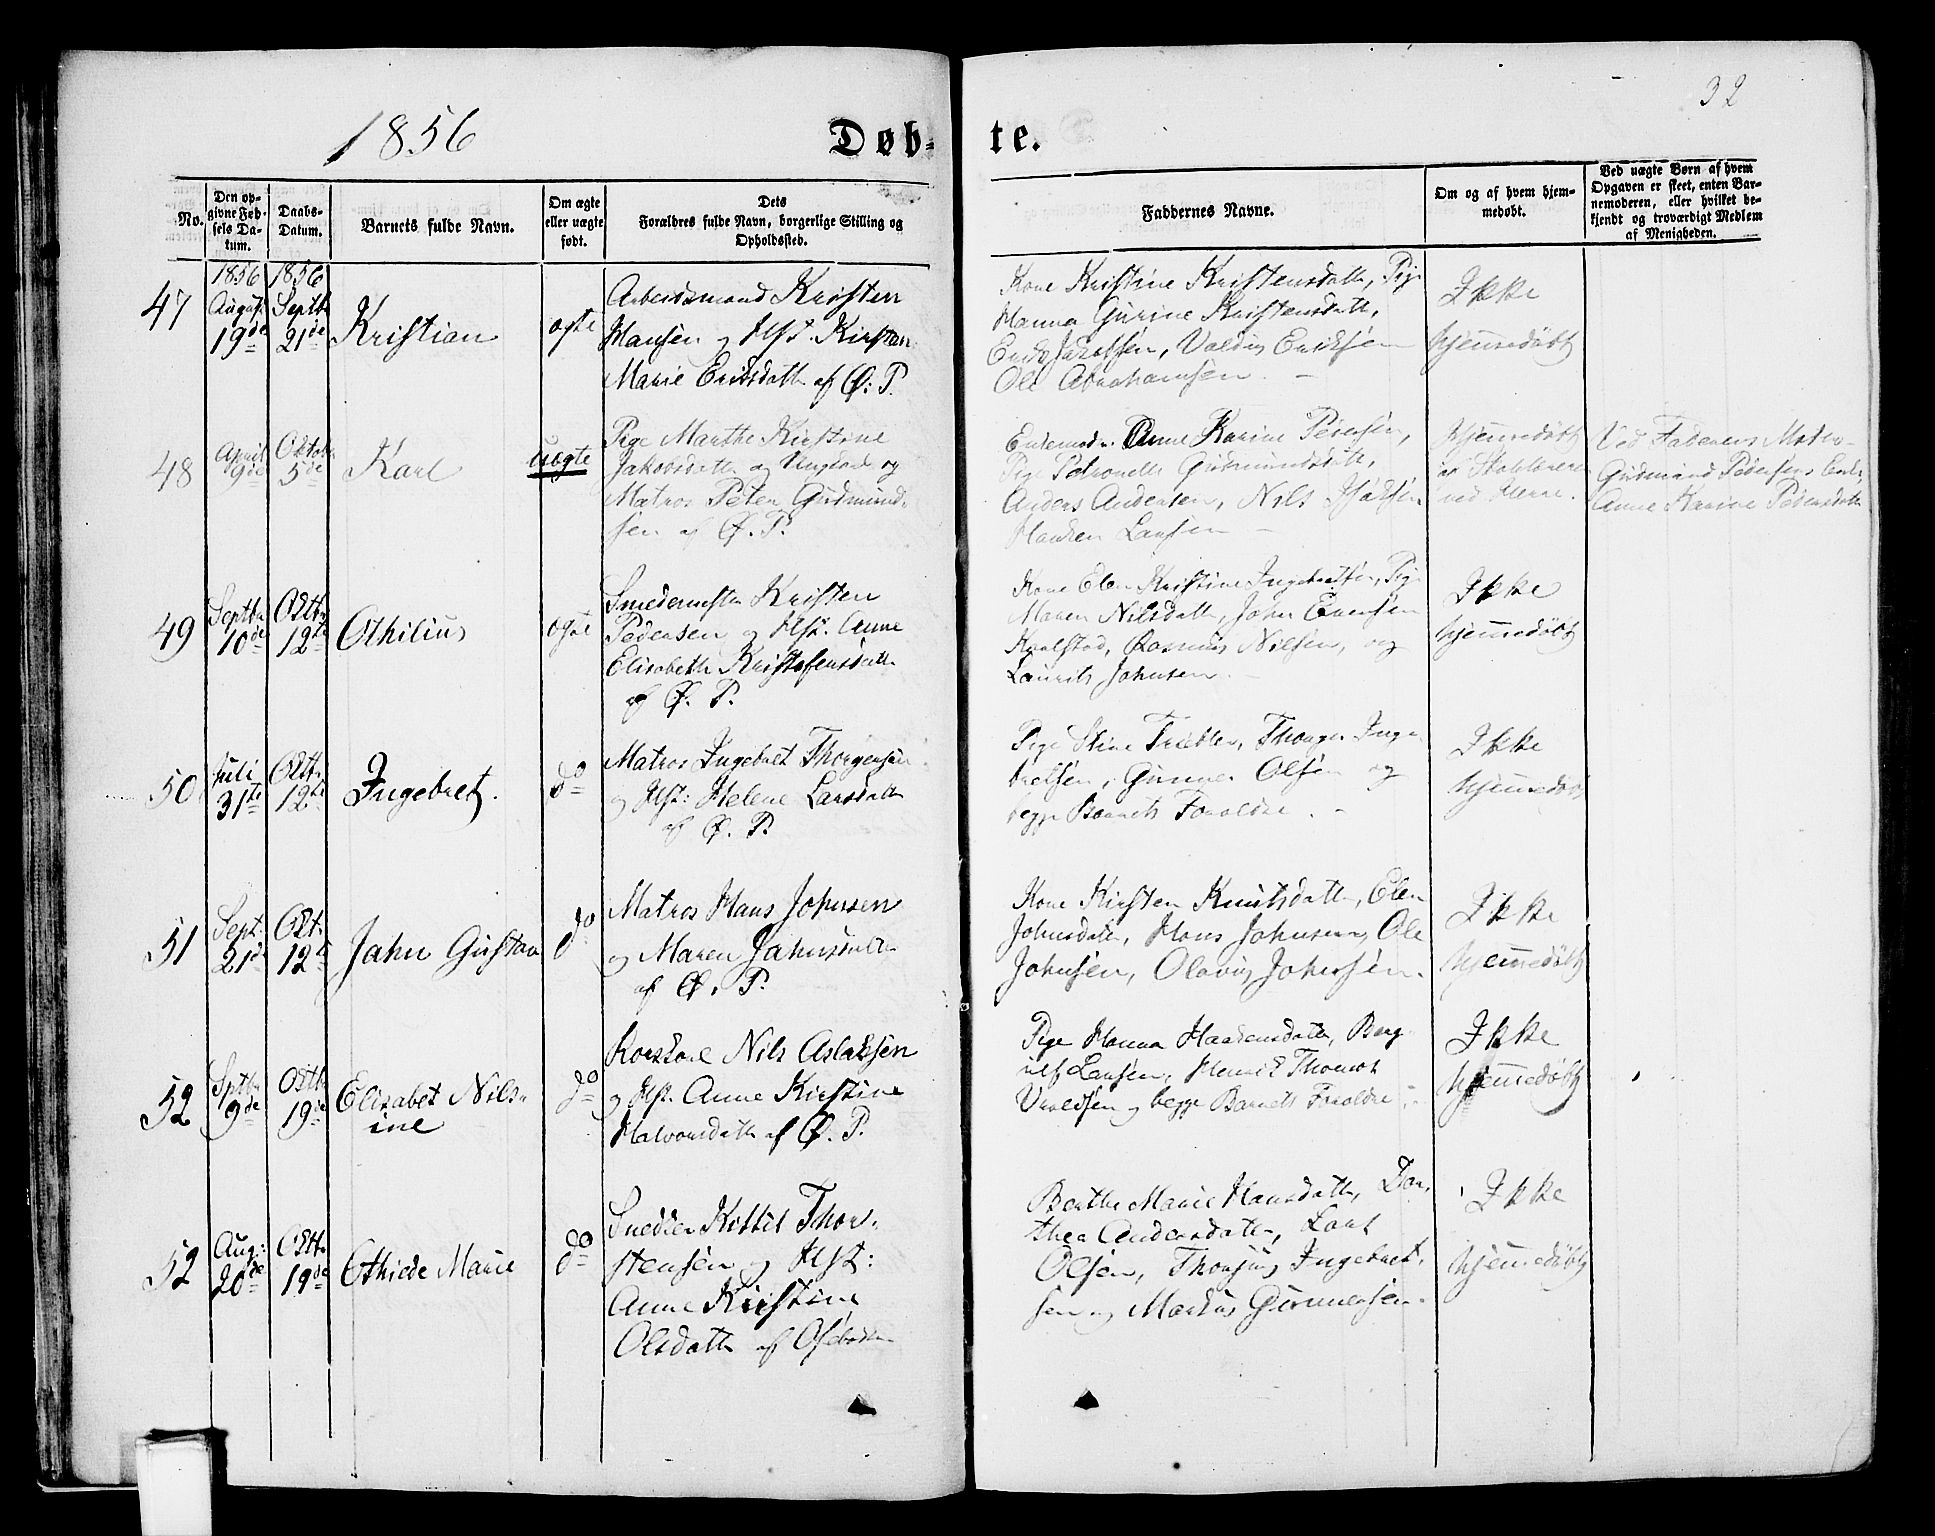 32
1856
Døb-
te.
No.
Den op-
givne Føb-
sels Da-
tum.
Daabs-
Datum.
Barnets fulde Navn.
Om ægte
eller uægte
født.
Dets
Forældres fulde Navn, borgerlige Stilling og
Opholdssted.
Faddernes Navne.
Om og af hvem hjem-
medøbt.
Ved uægte Børn af hvem
Opgaven er skeet, enten Bar-
nemoderen, eller hvilket be-
kjendt og troværdigt Medlem
af Menigheden.
47
1856
August
19de
1856
Septbr
21de
Kristian
ægte
Arbeidsmand Kristen
Hansen og Hst. Kirsten
Marie Eriksdatt af Ø: P.
Kone Kristine Kristensdatt, Pige
Hanna Gurine Kristensdatt,
Erik Jakobsen, Valdus Eriksen
Ole Abrahamsen. -
Ikke
hjemmedøbt
48
April
9de
Oktob
5de
Karl
Uægte
Pige Marthe Kirstine
Jakobsdatt og Ungkarl og
Matros Peter Gudmund-
sen af Ø. P.
Enkemde. Anne Karine Pedersen,
Pige Petronelle Gudmundsdatt,
Anders Andersen, Nils Isaksen
Hansen Larsen -
hjemmedøbt
af Skolelærer
ved Herre.
Ved Faderens Moder
Gudmund Pedersens Enke,
Anne Karine Pedersdatt
49
Septbr
10de
Oktb
12te
Othilius
ægte
Smedemester Kristen
Pedersen og Hst. Anne
Elisabeth Kristofensdatt
af Ø. P.
Kone Elen Kristine Ingebretsen, Pige
Maren Nilsdatt, John Evensen
Rasmus Nilsen, og
Laurits Johnsen. -
Ikke
hjemmedøbt
50
Juli
31te
Oktb.
12te
Ingebret.
do
Matros Ingebret Thorgersen
og Hst: Helene Larsdatt
af Ø. P.
Pige Stine Thorger Inge
bretsen, Gunner Olsen og
begge Barnets Forældre. -
Ikke
hjemmedøbt
51
Sept.
21de
Okt.
12te
Jahn Gustav
do
Matros Hans Johnsen
og Maren Jahnsdatt
af Ø. P.
Kone Kirsten Knutsdatt, Elen
Johnsdatt, Hans Johnsen, Ole
Johnsen, Olavus Johnsen.
Ikke
hjemmedøbt
52
Sptbr
9de
Oktb
19de
Elisabet Nils-
ine
do
Korskarl Nils Aslaksen
og Hst. Anne Kirstine
Halvorsdatt af Ø. P.
Pige Hanna Haakensdatt, Berg
ulf Larsen, Henrik Thomas
og begge Barnets Forældre. -
Ikke
hjemmedøbt
52
Aug:
20de
Oktb.
19de
Othiede Marie
do
Smeden Kittil Thor-
stensen og Hst:
Anne Kirstine
Olsdatt af Osebakken
Berthe Marie Hansdatt, Dor-
thea Andersdatt, Lars
Olsen, Ingebret-
sen og Markus Gunnersen.
Ikke
hjemmedøbt